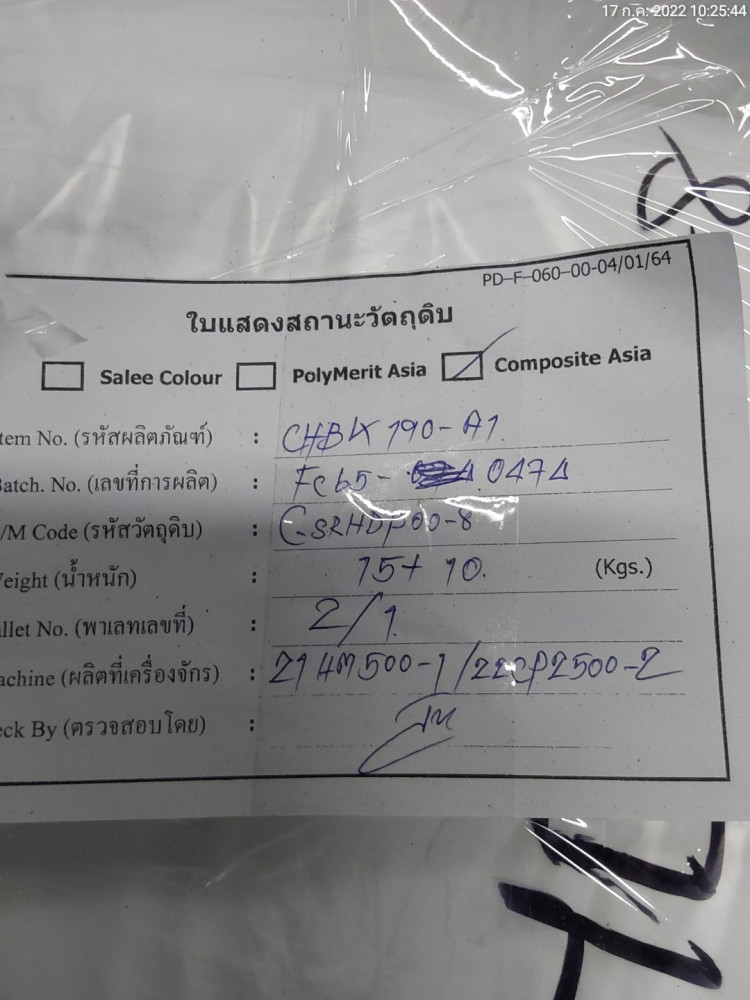 17 ก.ค. 2022 10:25:44
PD-F-060-00-04/01/64
ใบแสดงสถานะวัตถุดิบ
Salee Colour PolyMerit Asia Composite Asia
tem No. (รหัสผลิตภัณฑ์) : CHBK 190-A1
Batch. No. (เลขที่การผลิต) : FC65- 0474
/M Code (รหัสวัตถุดิบ) :
Weight (น้ำหนัก) : 15+10. (Kgs.)
allet No. (พาเลทเลขที่) : 2/1
achine (ผลิตที่เครื่องจักร) : Z1HM500-1/22CP2500-2
eck By (ตรวจสอบโดย) :